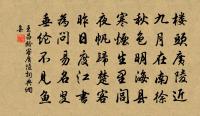 樓頭廣陵近
九月在南徐
秋色明海縣
寒煙生里閭
夜帆歸楚客
昨日度江書
為問易名叟
垂綸不見魚
王昌齡客廣陵詞典網
集